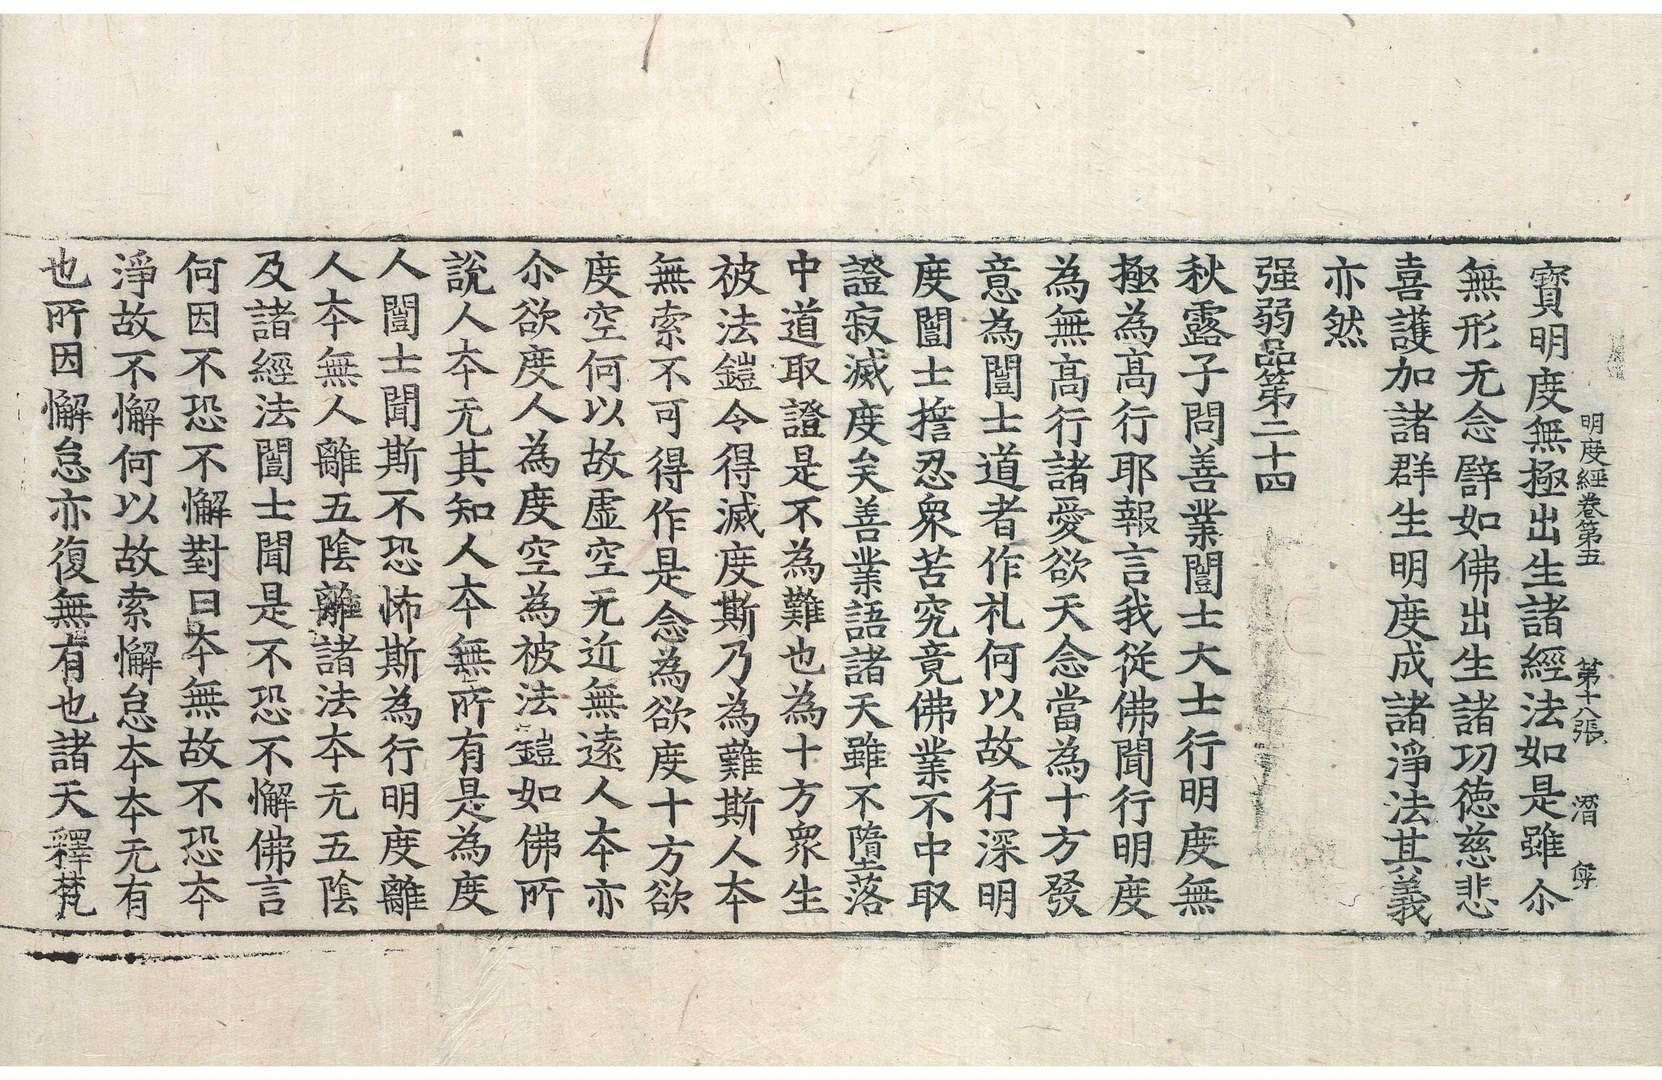 明度經卷第五 第十八張 潛
寶明度無極出生諸經法如是雖尒
無形无念譬如佛出生諸功德慈悲
喜護加諸群生明度成諸淨法其義
亦然
强弱品第二十四
秋露子問善業闓士大士行明度無
極為高行耶報言我從佛聞行明度
為無高行諸愛欲天念當為十方發
意為闓士道者作礼何以故行深明
度闓士擔忍衆苦究竟佛業不中取
證寂滅度矣善業語諸天雖不隋落
中道取證是不為難也為十方衆生
被法鎧令得滅度斯乃為難斯人本
無索不可得作是念為欲度十方欲
度空何以故虛空无近無遠人本亦
尒欲度人為度空為被法鎧如佛所
說人本无其知人本無所有是為度
人闓士聞斯不恐怖斯為行明度離
人本無人離五陰離諸法本无五陰
及諸經法闓士聞是不恐不懈佛言
何因不恐不懈對曰本無故不恐本
淨故不懈何以故索懈怠本本无有
也所因懈怠亦復無有也諸天釋梵